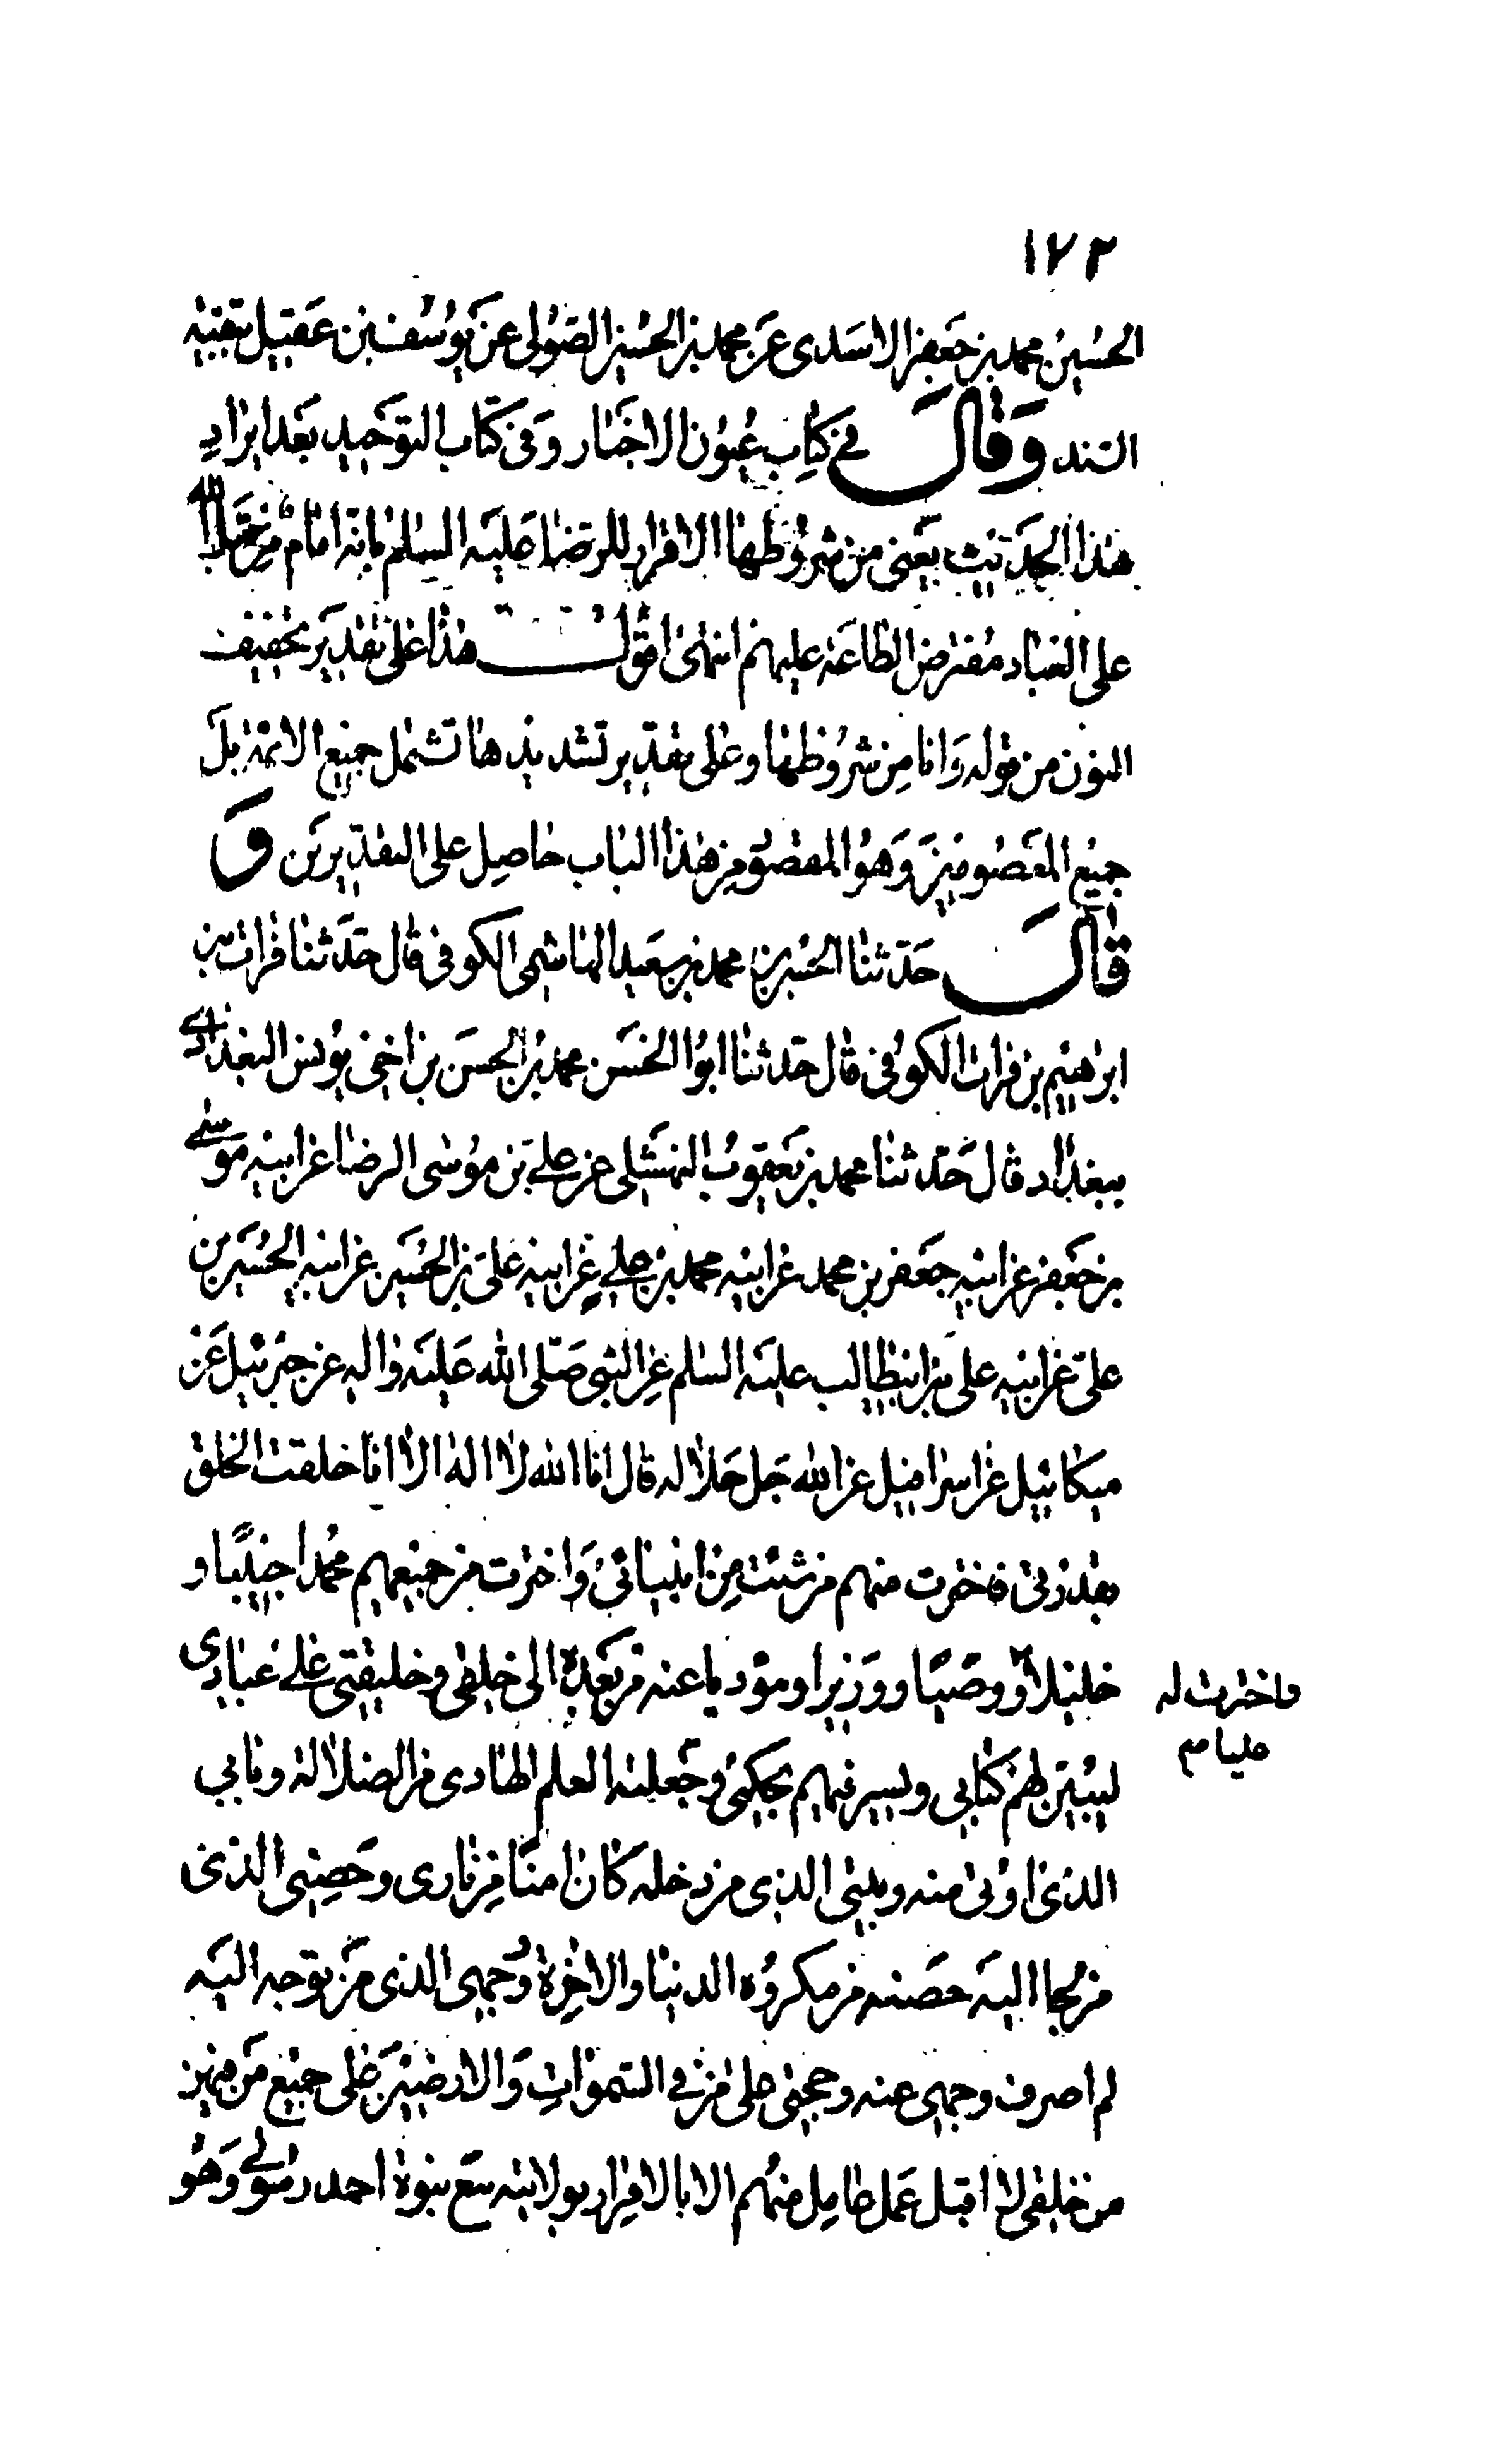 ١٧٢
الحسين محمد بن جعفر الاسدى عن محمد بن الحسين الصولى عن يوسف بن عقيل بقيته
السند وقال فى كتاب عيون الاخبار وفى كتاب التوحيد بعد ايراد
هذا الحديث يعنى من شروطها الاقرار للرضا عليه السلم بانه امام من قبل الله
على العباد مفترض الطاعة عليهم انتهى اقول هذا على تقدير تخفيف
النون من قوله وانا من شروطها وعلى تقدير تشديدها تشمل جميع الائمة بل
جميع المعصومين وهو المقصود من هذا الباب حاصل على التقديرين و
قال حدثنا الحسن بن محمد بن سعيد الهاشمى الكوفى قال حدثنا فرات بن
ابرهيم بن فرات الكوفى قال حدثنا ابو الحسن محمد بن الحسن بن اخى يونس البغدادى
ببغداد قال حدثنا محمد بن يعقوب النهشلى عن على بن موسى الرضا عن ابيه موسى
بن جعفر عن ابيه جعفر بن محمد عن ابيه محمد بن على عن ابيه على بن الحسين عن ابيه الحسين بن
على عن ابيه على بن ابيطالب عليه السلم عن النبى صلى الله عليه واله عن جبرئيل عن
ميكائيل عن اسرافيل عن الله جل جلاله قال انا الله لا اله الا انا خلقت الخلق
بقدرتى فاخترت منهم من شئت من انبيائى واخترت من جميعهم محمدا حبيبا و
خليلا ووصيا ووزيرا ومؤديا عنه من بعده الى خلقى وخليفتى على عبادى
فاخترت له
عليا م
ليبين لهم كتابى ويسير فيهم بحكمى وجعلته العلم الهادى من الضلالة وبابى
الذى اوتى منه وبيتى الذى من دخله كان امنا من نارى وحصنى الذى
من لجا اليه حصنته من مكروه الدنيا والاخرة وجهى الذى من توجه اليه
لم اصرف وجهى عنه وحجتى على من فى السموات والارضين على جميع من فيهن
من خلقى لا اقبل عمل عامل منهم الا بالاقرار بولايته مع نبوة احمد رسولى وهو